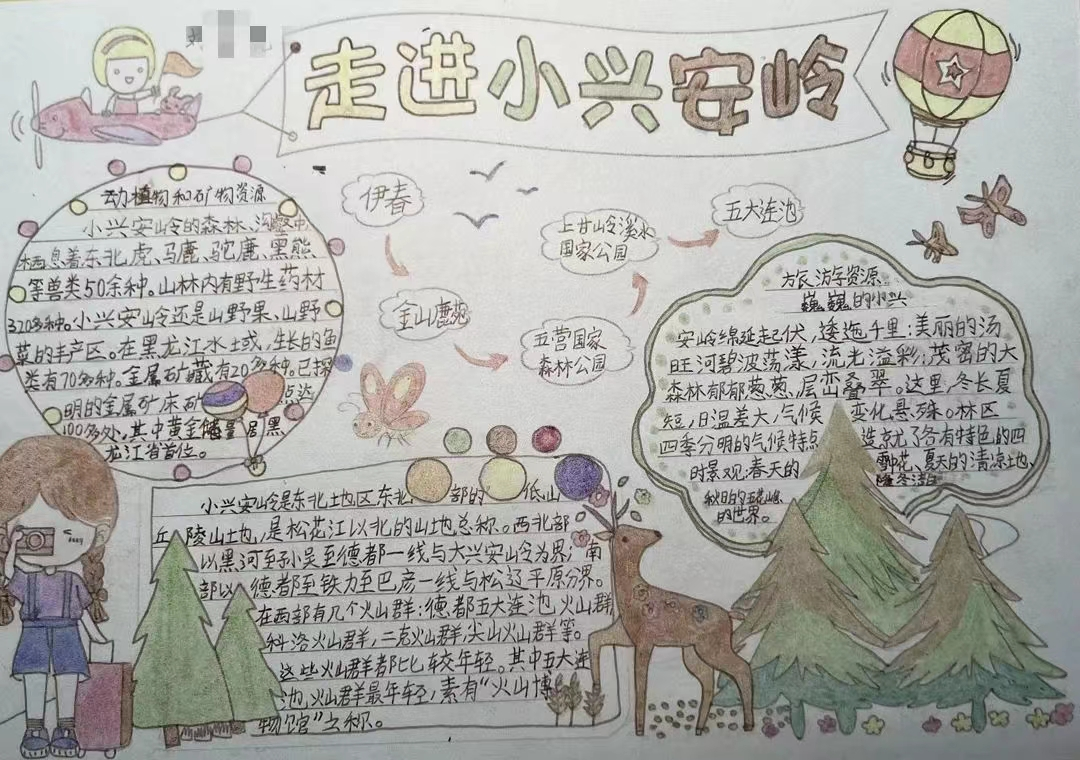 走进小兴安岭
动植物和矿物资源
小兴安岭的森林、沟壑中
栖息着东北虎、马鹿、驼鹿、黑熊
等兽类50余种。山林内有野生药材
320多种。小兴安岭还是山野果、山野
菜的丰产区。在黑龙江水域,生长的鱼
类有70多种。金属矿藏有20多种。已探
明的金属矿床矿 点达
100多处,其中黄金储量居黑
龙江省首位。
伊春
金山鹿苑
五营国家
森林公园
上甘岭溪水
国家公园
五大连池
旅游资源
巍巍的小兴
安岭绵延起伏,逶迤千里:美丽的汤
旺河碧波荡漾,流光溢彩;茂密的大
森林郁郁葱葱,层峦叠翠。这里,冬长夏
短,日温差大,气候 变化悬殊。林区
四季分明的气候特点 造就了各有特色的四
时景观:春天的 花、夏天的清凉土地、
秋明的五 的世界。
小兴安岭是东北土地区东北 部的 低山
丘陵山土地,是松花江以北的山地总称。西北部
以黑河至孙吴至德都一线与大兴安岭为界;南
部以 德都至铁力至巴彦一线与松辽平原分界。
在西部有几个火山群:德都五大连池,火山群
科洛火山群,二克火山群,尖山火山群等。
这些火山群都比较年轻。其中五大连
池火山群最年轻,素有“火山博
物馆”之称。